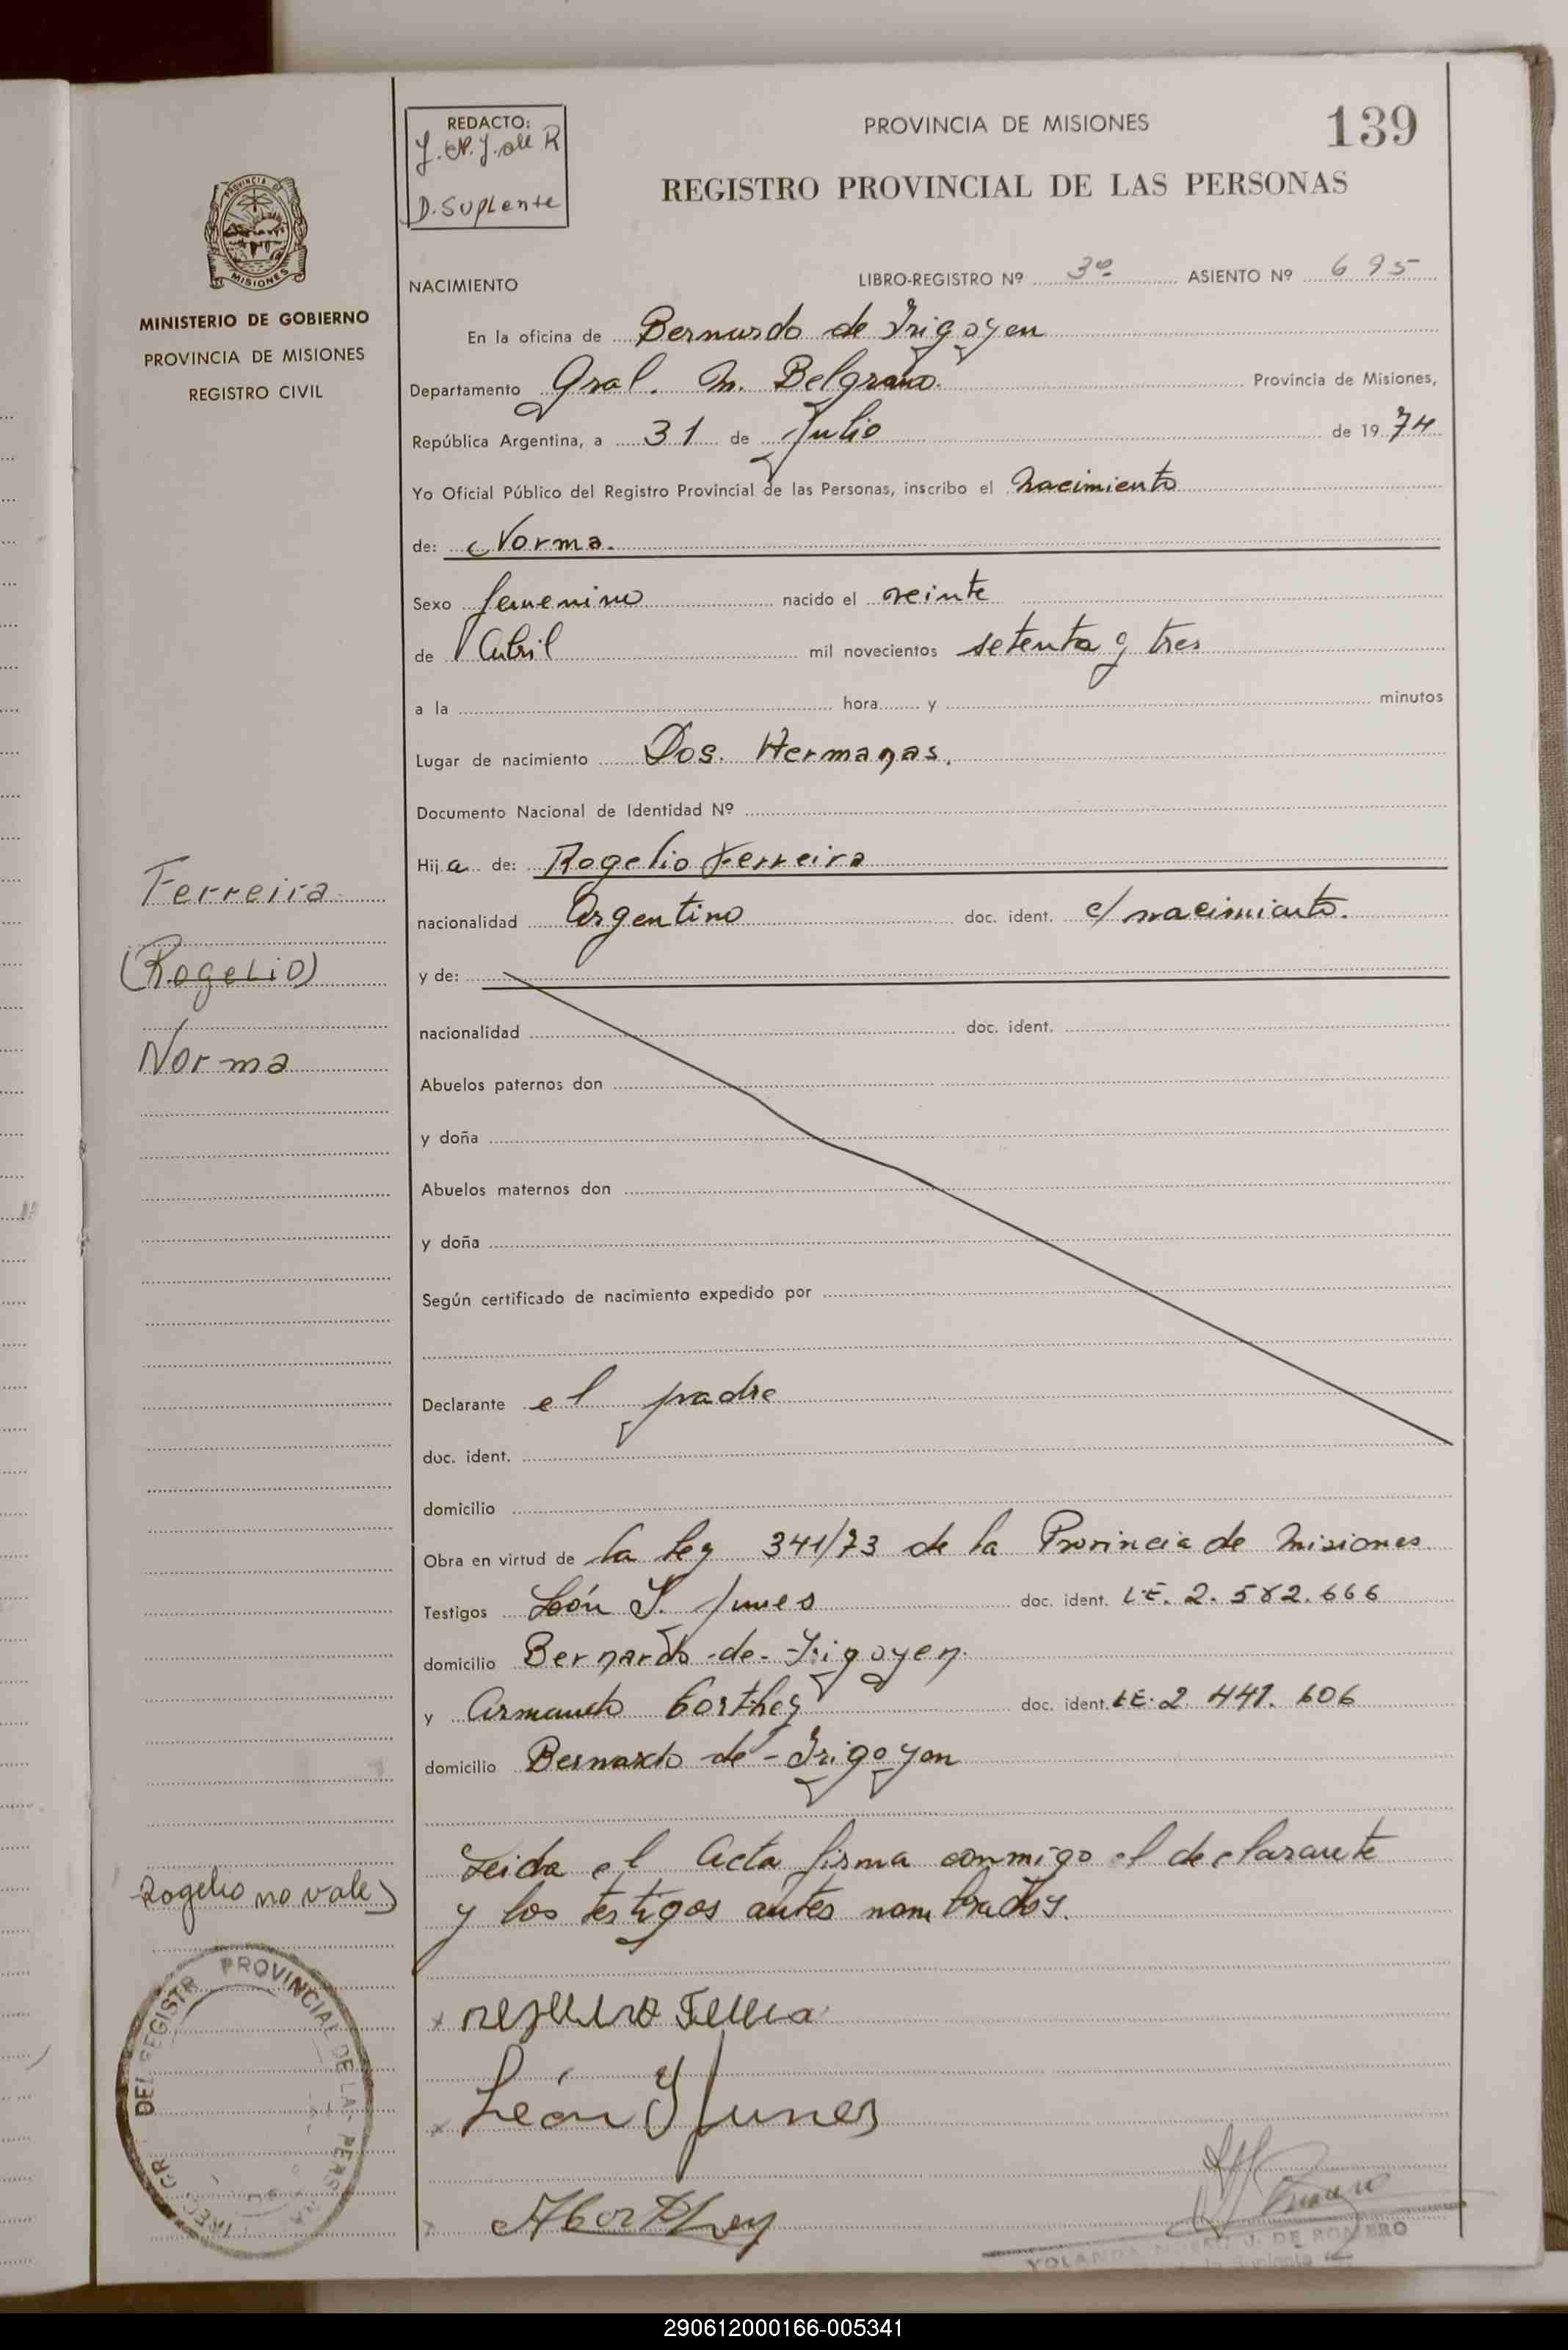 REDACTO:
D. Suplente
PROVINCIA DE MISIONES
139
REGISTRO PROVINCIAL DE LAS PERSONAS
PROVINCIA
MISIONES
MINISTERIO DE GOBIERNO
PROVINCIA DE MISIONES
REGISTRO CIVIL
NACIMIENTO LIBRO-REGISTRO Nº 3º ASIENTO Nº 695
En la oficina de Bernardo de Irigoyen
Departamento Gral. M. Belgrano. Provincia de Misiones,
República Argentina, a 31 de Julio de 1974
Yo Oficial Público del Registro Provincial de las Personas, inscribo el nacimiento
de: Norma.
Sexo femenino nacido el veinte
de Abril mil novecientos setenta y tres
a la hora y minutos
Lugar de nacimiento Dos Hermanas.
Documento Nacional de Identidad Nº
Hija de: Rogelio Ferreira
nacionalidad Argentino doc. ident. c/ nacimiento.
y de:
nacionalidad doc. ident.
Abuelos paternos don
y doña
Abuelos maternos don
y doña
Según certificado de nacimiento expedido por
Declarante el padre
doc. ident.
domicilio
Obra en virtud de la ley 341/73 de la Provincia de Misiones
Testigos León Junes doc. ident. L.E. 2.582.666
domicilio Bernardo-de-Irigoyen.
y Armando Corthey doc. ident. L.E. 2.441.606
domicilio Bernardo-de-Irigoyen
Leida el Acta firma conmigo el declarante
y los testigos antes nombrados.
Ferreira
(Rogelio)
Norma
Rogelio no vale
DEL REGISTR PROVINCIAL DE LAS PERS
León Junes
ACorthey
YOLANDA J. DE ROMERO
Suplente
290612000166-005341